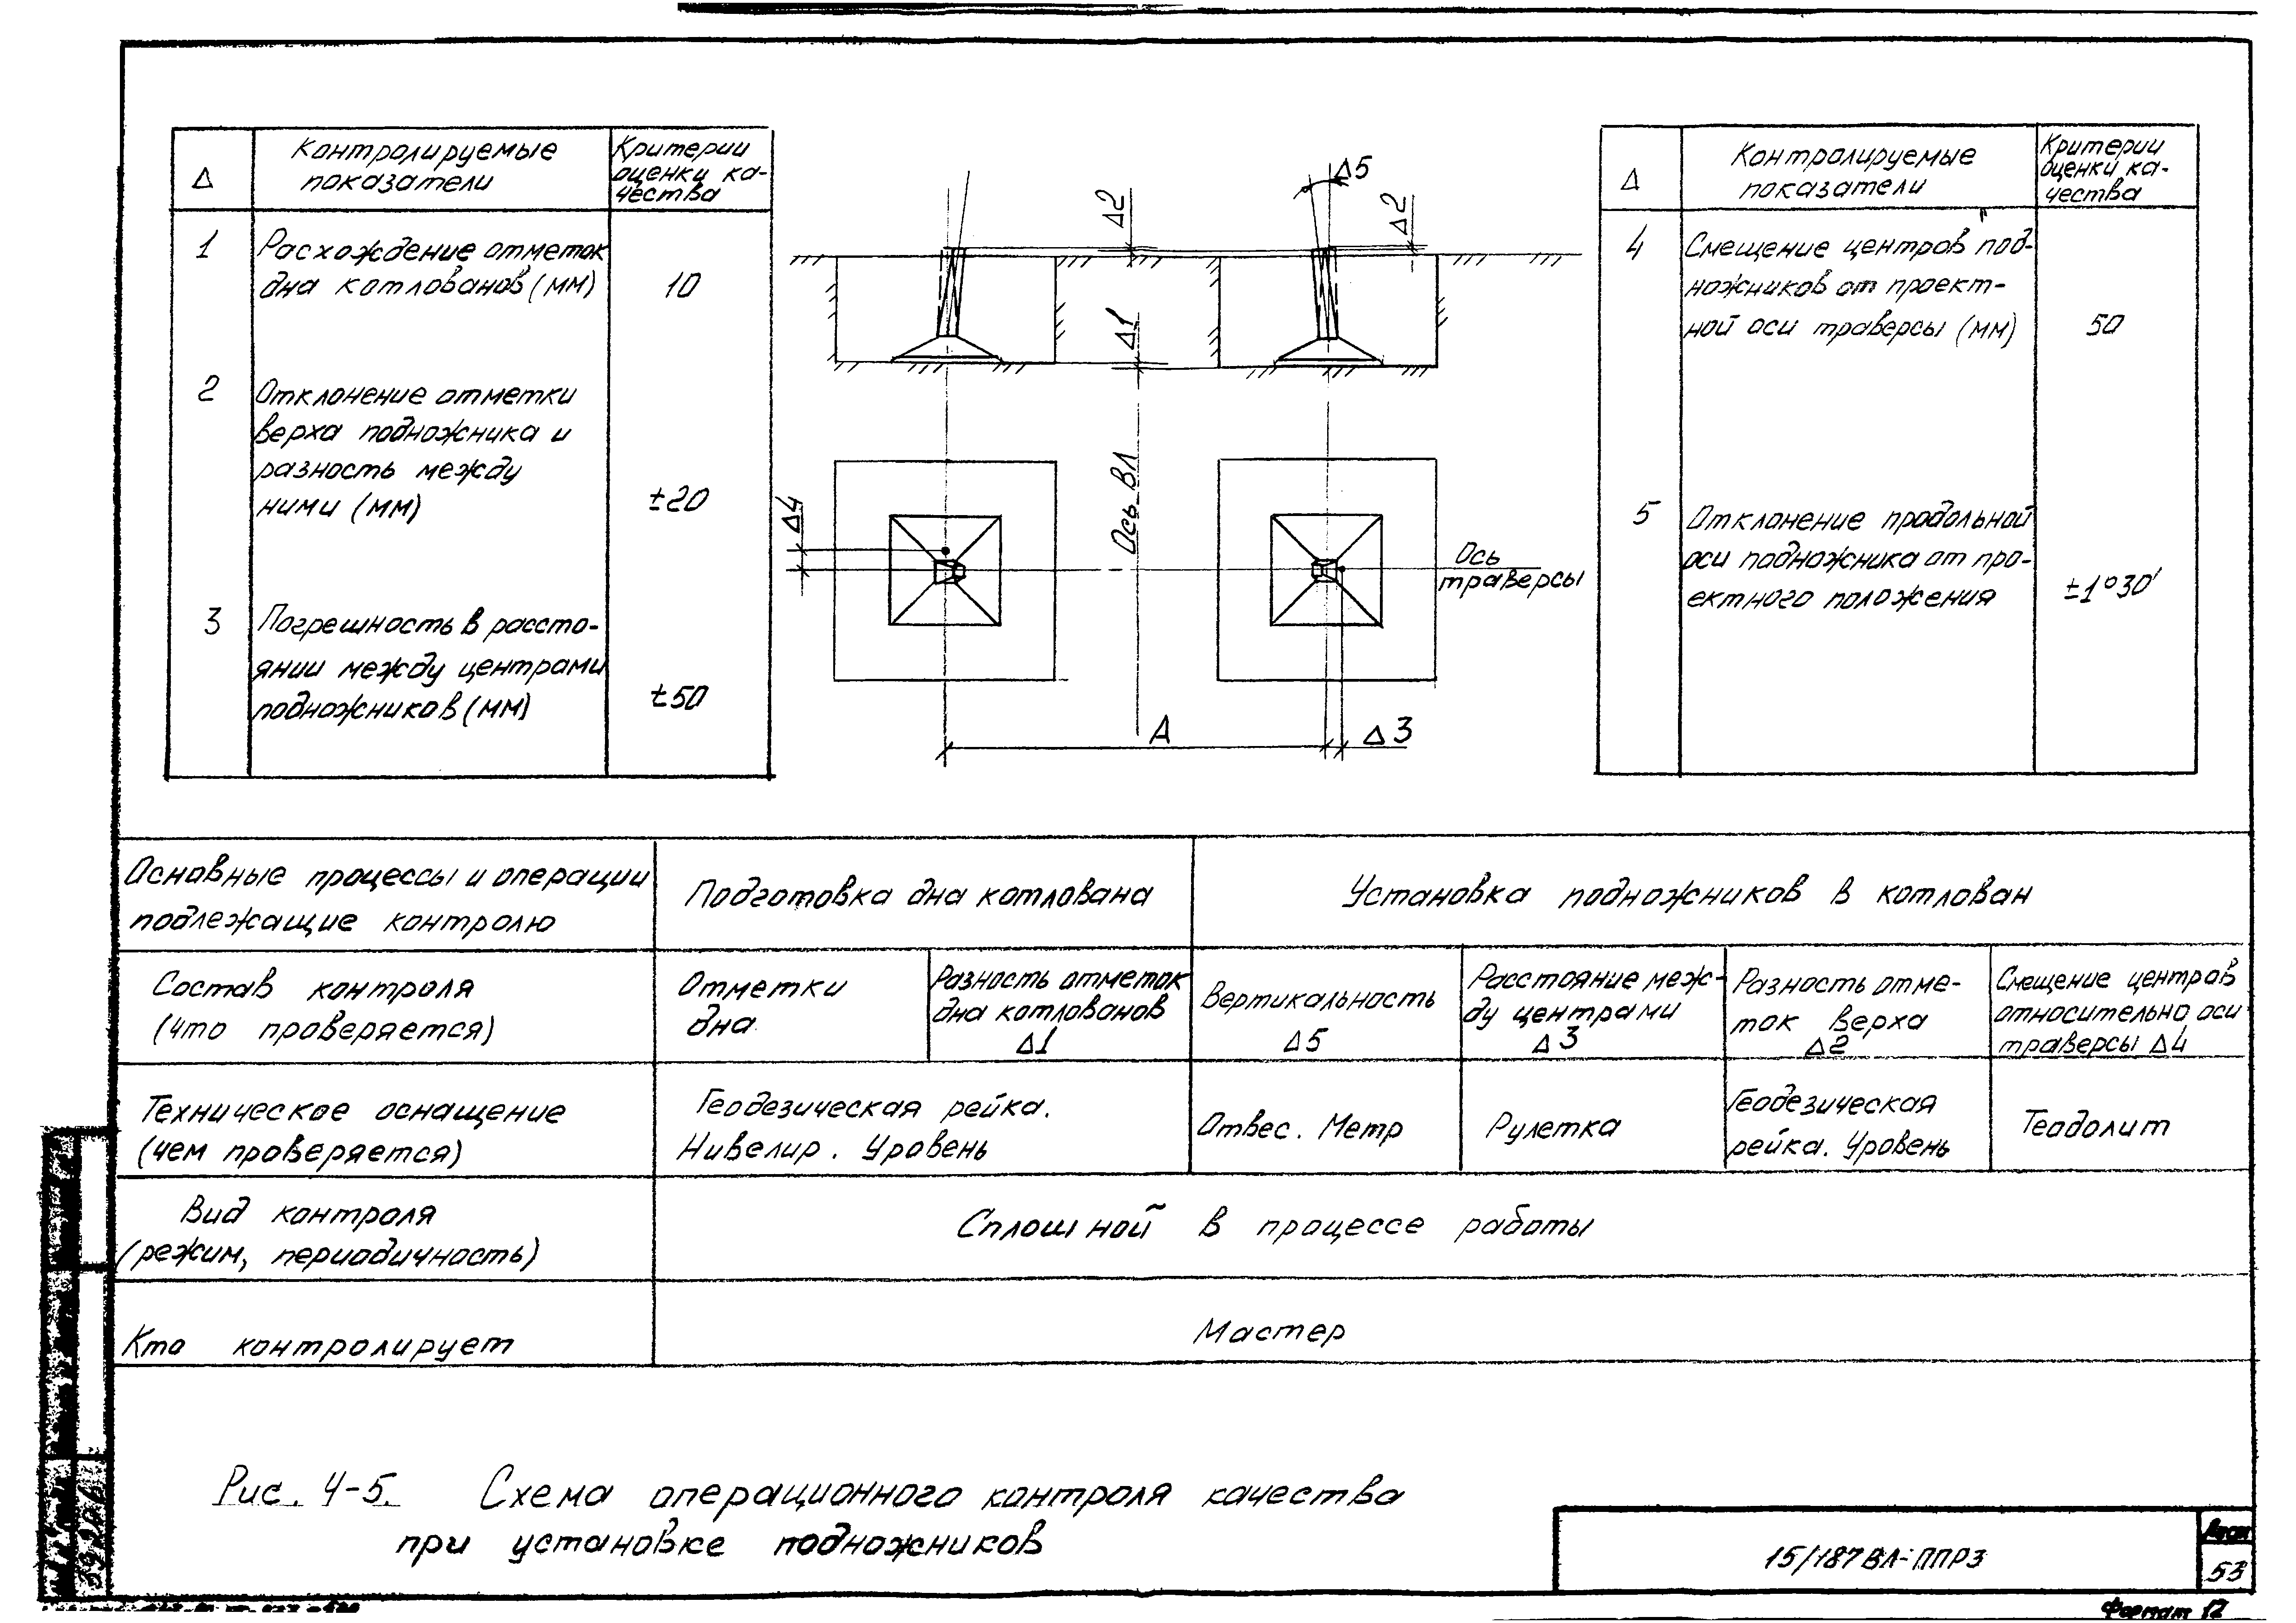 Δ
Контролируемые
показатели
Критерии
оценки ка-
чества
1
Расхождение отметок
дна котлованов (мм)
10
2
Отклонение отметки
верха подножника и
разность между
ними (мм)
±20
3
Погрешность в рассто-
янии между центрами
подножников (мм)
±50
Δ2
Δ5
Δ2
Δ1
Ось ВЛ
Δ4
Ось
траверсы
А
Δ3
Δ
Контролируемые
показатели
Критерии
оценки ка-
чества
4
Смещение центров под-
ножников от проект-
ной оси траверсы (мм)
50
5
Отклонение продольной
оси подножника от про-
ектного положения
±1°30'
Основные процессы и операции
подлежащие контролю
Подготовка дна котлована
Установка подножников в котлован
Состав контроля
(что проверяется)
Отметки
дна
Разность отметок
дна котлованов
Δ1
Вертикальность
Δ5
Расстояние меж-
ду центрами
Δ3
Разность отме-
ток верха
Δ2
Смещение центров
относительно оси
траверсы Δ4
Техническое оснащение
(чем проверяется)
Геодезическая рейка.
Нивелир. Уровень
Отвес. Метр
Рулетка
Геодезическая
рейка. Уровень
Теодолит
Вид контроля
(режим, периодичность)
Сплошной в процессе работы
Кто контролирует
Мастер
Рис. 4-5. Схема операционного контроля качества
при установке подножников
15/187 ВЛ-ППР3
Лист
53
Формат 12